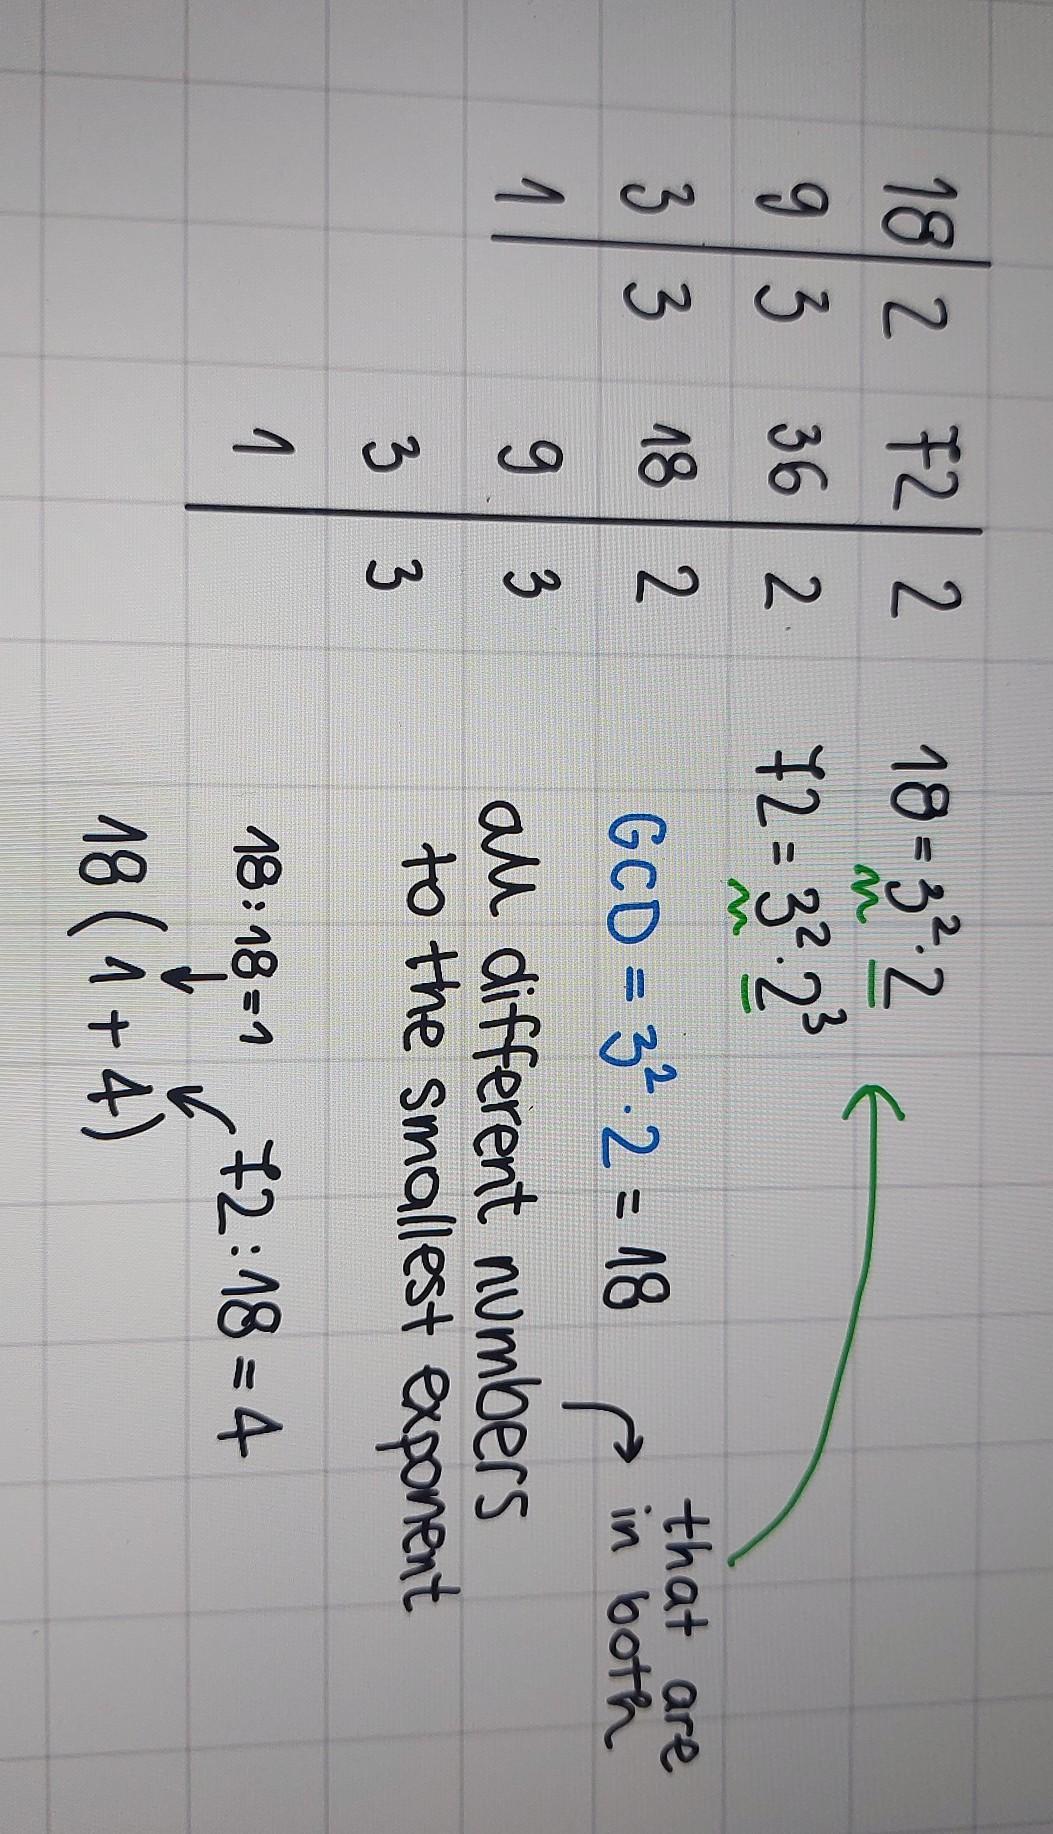 18 | 2 72 | 2 18 = 3² · 2
9 | 3 36 | 2 72 = 3² · 2³
3 | 3 18 | 2 GCD = 3² · 2 = 18
1 | 9 | 3 all different numbers
that are
in both
3 | 3 to the smallest exponent
1 | 18 : 18 = 1 72 : 18 = 4
18 ( 1 + 4 )